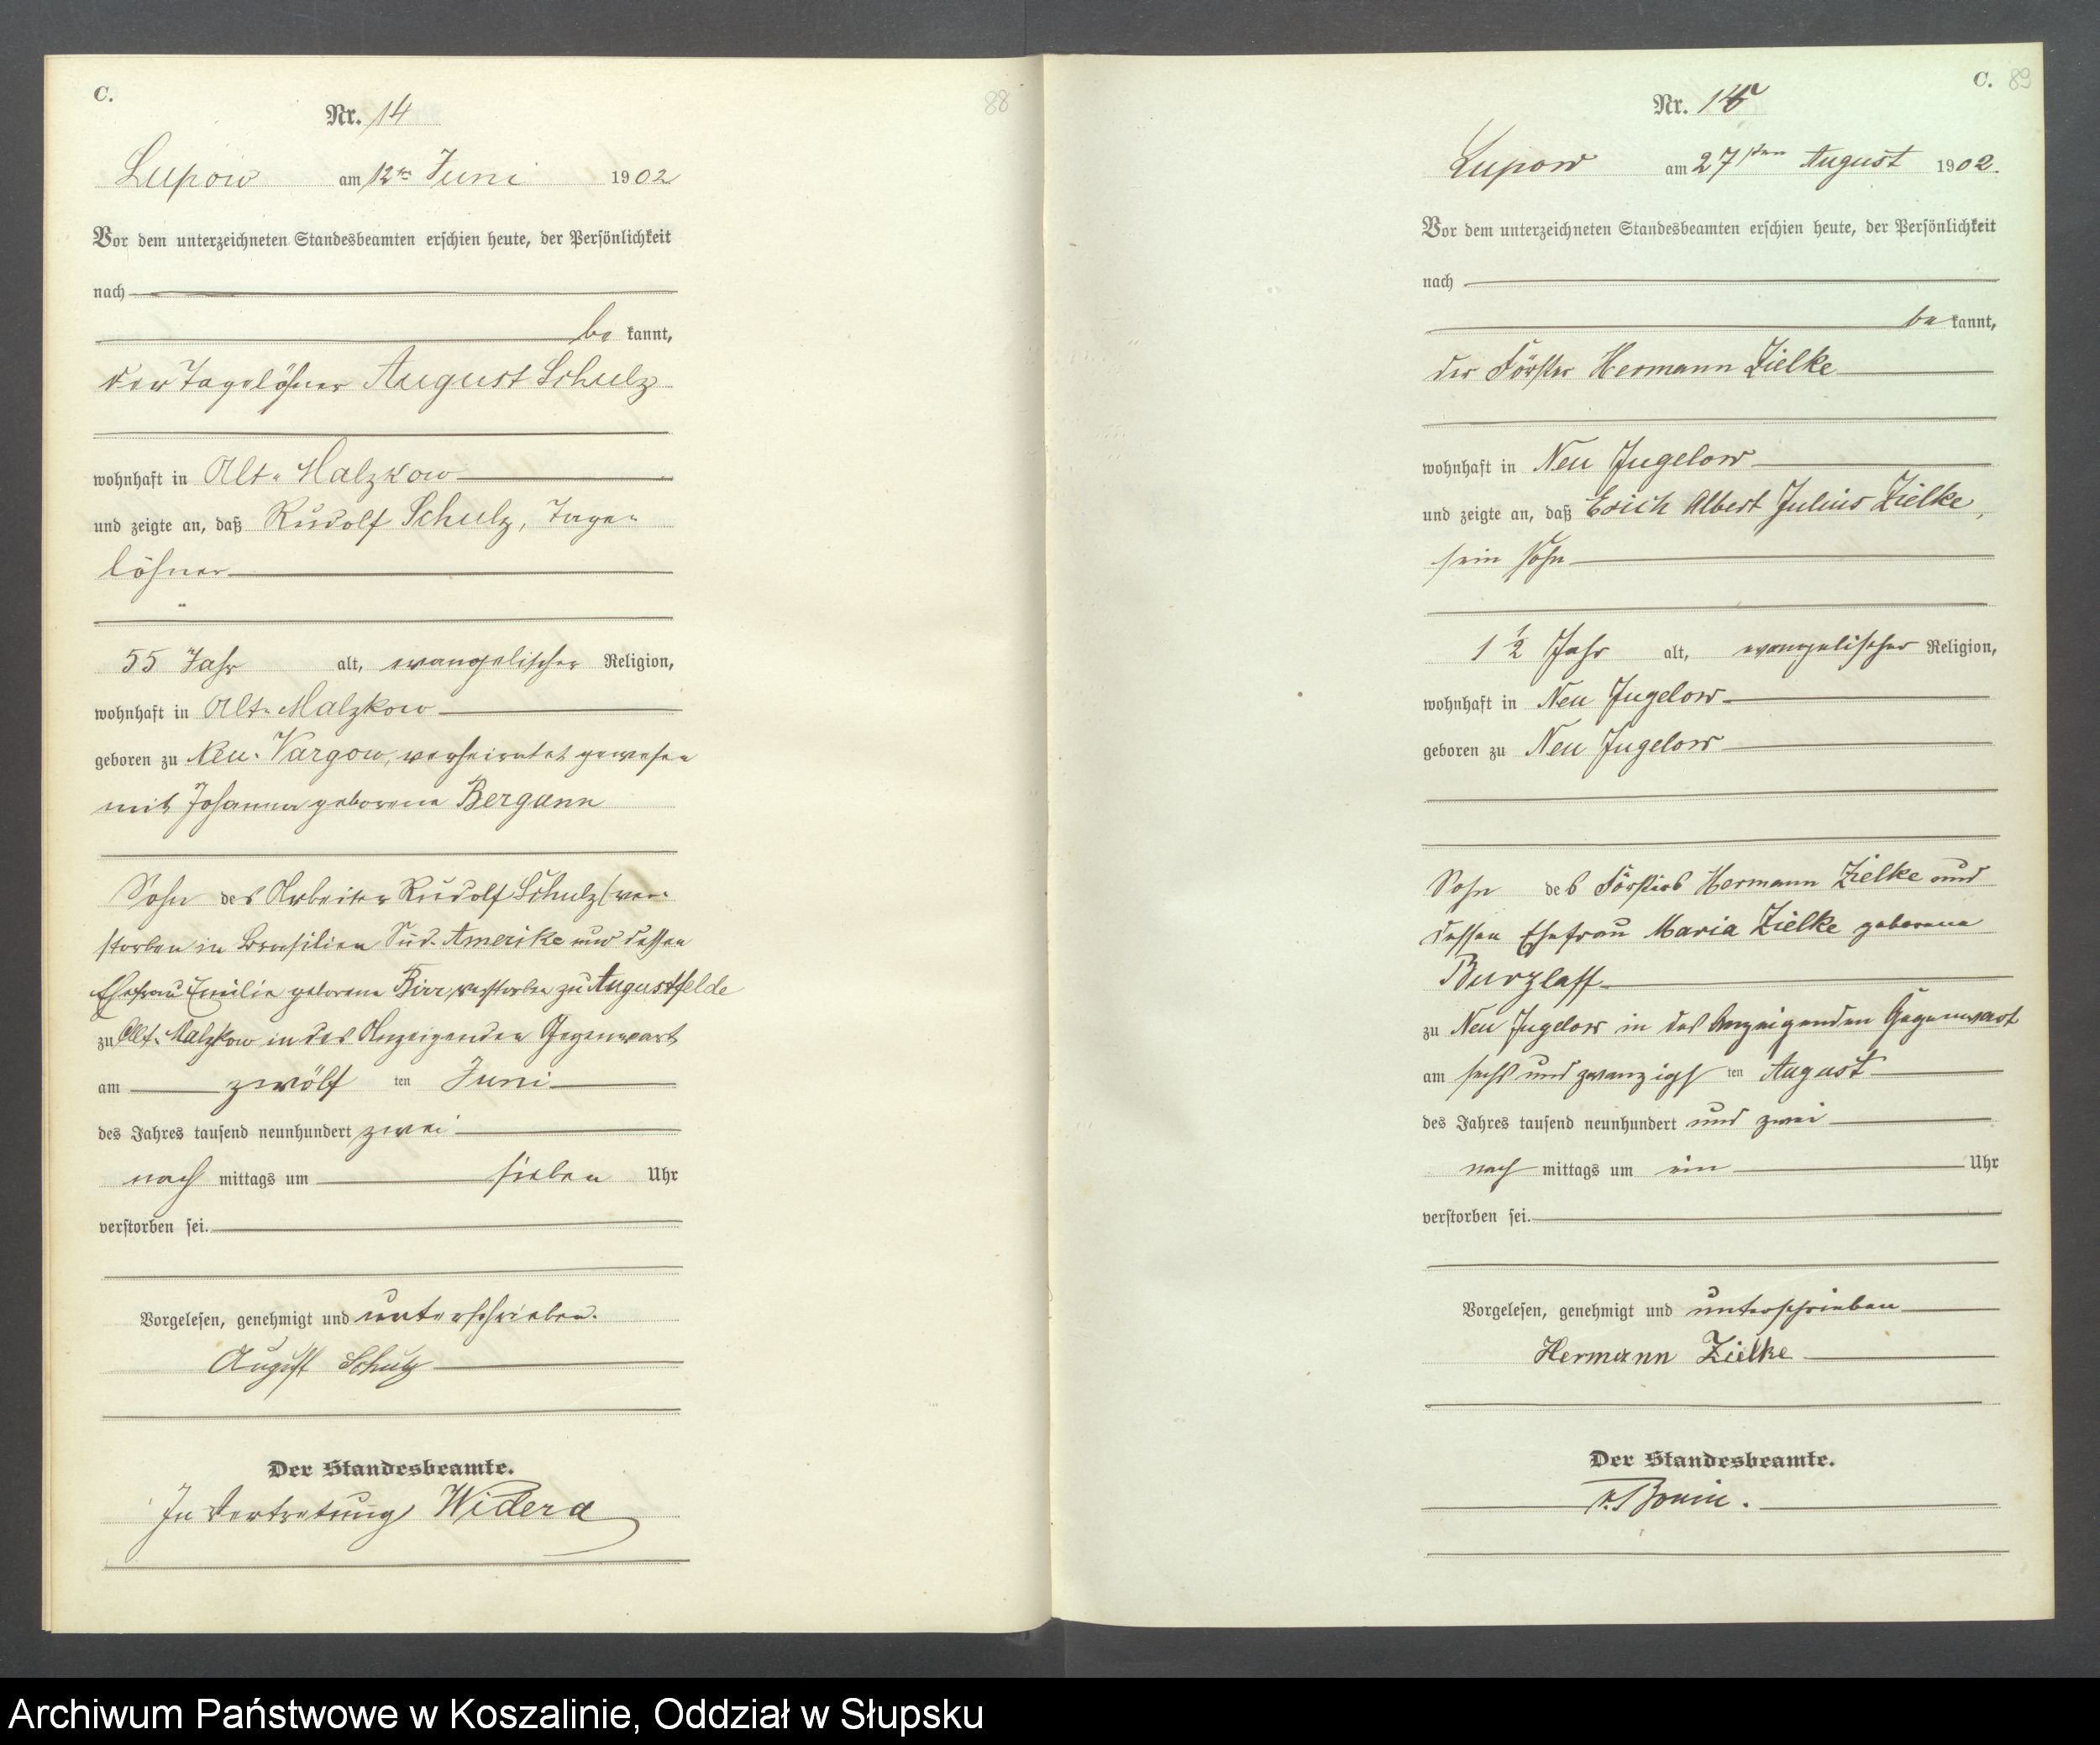 C.
88
Nr. 14
Lupow am 12ten Juni 1902
Vor dem unterzeichneten Standesbeamten erschien heute, der Persönlichkeit
nach
be kannt,
der Tagelöhner August Schulz
wohnhaft in Alt-Malzkow
und zeigte an, daß Rudolf Schulz, Tage-
löhner
55 Jahr alt, evangelischer Religion,
wohnhaft in Alt-Malzkow
geboren zu Neu-Vargow, verheiratet gewesen
mit Johanna geborene Bergann
Sohn des Arbeiter Rudolf Schulz (ver-
storben in Brasilien Süd-Amerike und dessen
Ehefrau Emilie geborene Birr, verstorben zu Augustfelde
zu Alt-Malzkow in des Anzeigenden Gegenwart
am zwölf ten Juni
des Jahres tausend neunhundert zwei
nach mittags um sieben Uhr
verstorben sei.
Vorgelesen, genehmigt und unterschrieben.
August Schulz
Der Standesbeamte.
In Vertretung Widera
C. 89
Nr. 15
Lupow am 27sten August 1902.
Vor dem unterzeichneten Standesbeamten erschien heute, der Persönlichkeit
nach
be kannt,
der Förster Hermann Zielke
wohnhaft in Neu Jugelow
und zeigte an, daß Erich Albert Julius Zielke,
sein Sohn
1 1/2 Jahr alt, evangelischer Religion,
wohnhaft in Neu Jugelow
geboren zu Neu Jugelow
Sohn des Försters Hermann Zielke und
dessen Ehefrau Maria Zielke geborene
Burzlaff
zu Neu Jugelow in des Anzeigenden Gegenwart
am sechs und zwanzigs ten August
des Jahres tausend neunhundert und zwei
nach mittags um ein Uhr
verstorben sei.
Vorgelesen, genehmigt und unterschrieben
Hermann Zielke
Der Standesbeamte.
v. Bonin.
Archiwum Państwowe w Koszalinie, Oddział w Słupsku